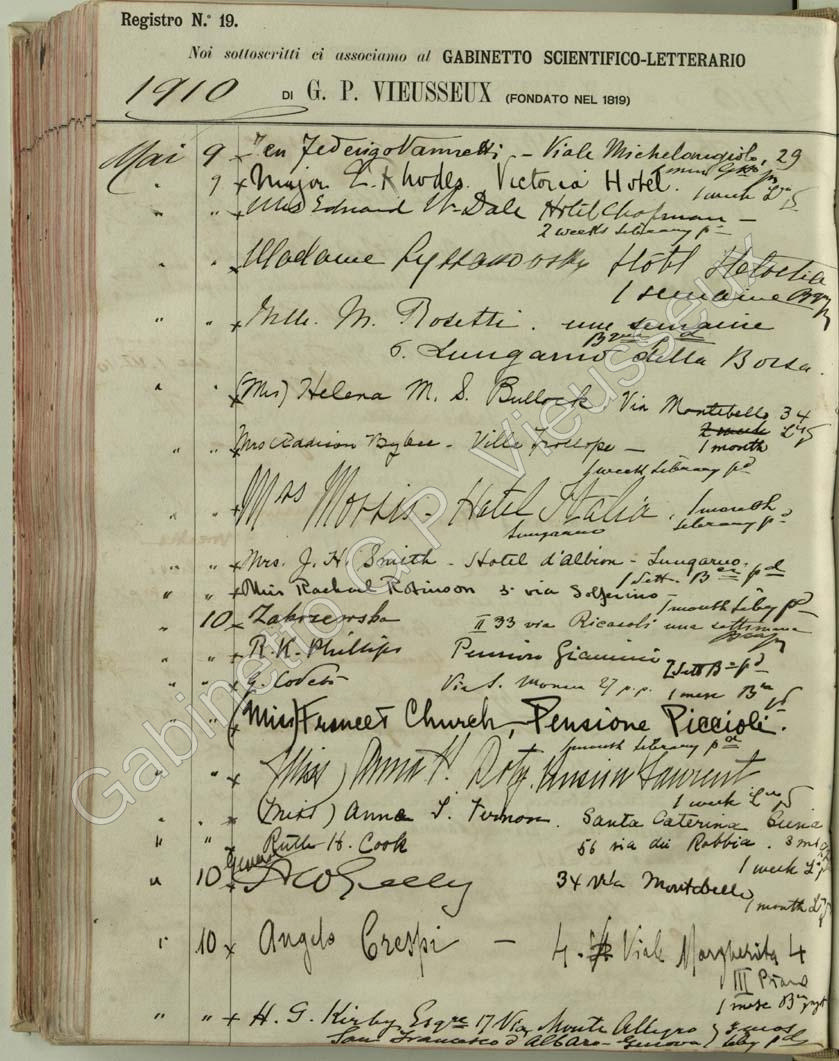 Registro N.º 19.
Noi sottoscritti ci associamo al GABINETTO SCIENTIFICO-LETTERARIO
1910 DI G. P. VIEUSSEUX (FONDATO NEL 1819)
Mai 9 x Federigo Vannetti - Viale Michelangiolo, 29
" 9 x Major E. Rhodes. Victoria Hotel.
1 week
" " x Edward W. Dale Hotel Chapman -
2 weeks Library pd
" " x Madame Hôtel Helvetia
1 semaine
" " x Mlle. M. Rosetti. une semaine
6. Lungarno della Borsa.
" " x (Mrs) Helena M. S. Bullock, Via Montebello 34
" " x Mrs Addison Bybee - Villa Trollope - 1 month
1 week Library pd
" " x Mrs Morris - Hotel Italia, 1 month
Lungarno Library pd
" " x Mrs. J. H. Smith - Hotel d'Albion - Lungarno.
1 Sett. pd
" " x Miss Rachael Robinson 5 via Solferino -
1 month Liby pd
" 10 x Zakrzewska II 33 via Ricasoli una settimana
" " x R. K. Phillips Pension Giannini
2 Sett pd
" " x G. Via S. Monaca 27 p.p. 1 mese
" " x (Miss) Frances Church, Pensione Piccioli.
1 month Library pd
" " x (Miss) Anna H. Doty. Pension Laurent
1 week
" " x (Miss) Anna S. Vernon. Santa Caterina Siena
" " x Ruth H. Cook 56 via dei Robbia. 3 mos
1 week
" 10 x General A W Greely 34 via Montebello
1 month
" 10 x Angelo Crespi - 4. Viale Margherita 4
III Piano
1 mese
" " x H. G. Kirby Esqre 17 Via Monte Allegro 3 mos
San Francesco d'Albaro - Genova Liby pd
Gabinetto G.P. Vieusseux